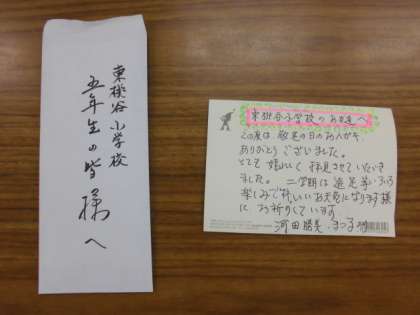 東桃谷小学校
五年生の皆様へ
東桃谷小学校のお友達へ
この度は敬老の日のお人がキ
ありがとうございました。
とても嬉しく拝見させていただき
ました。二学期は遠足等いろいろ
楽しみで いいお天気になります様
にお祈りしています
河田勝美